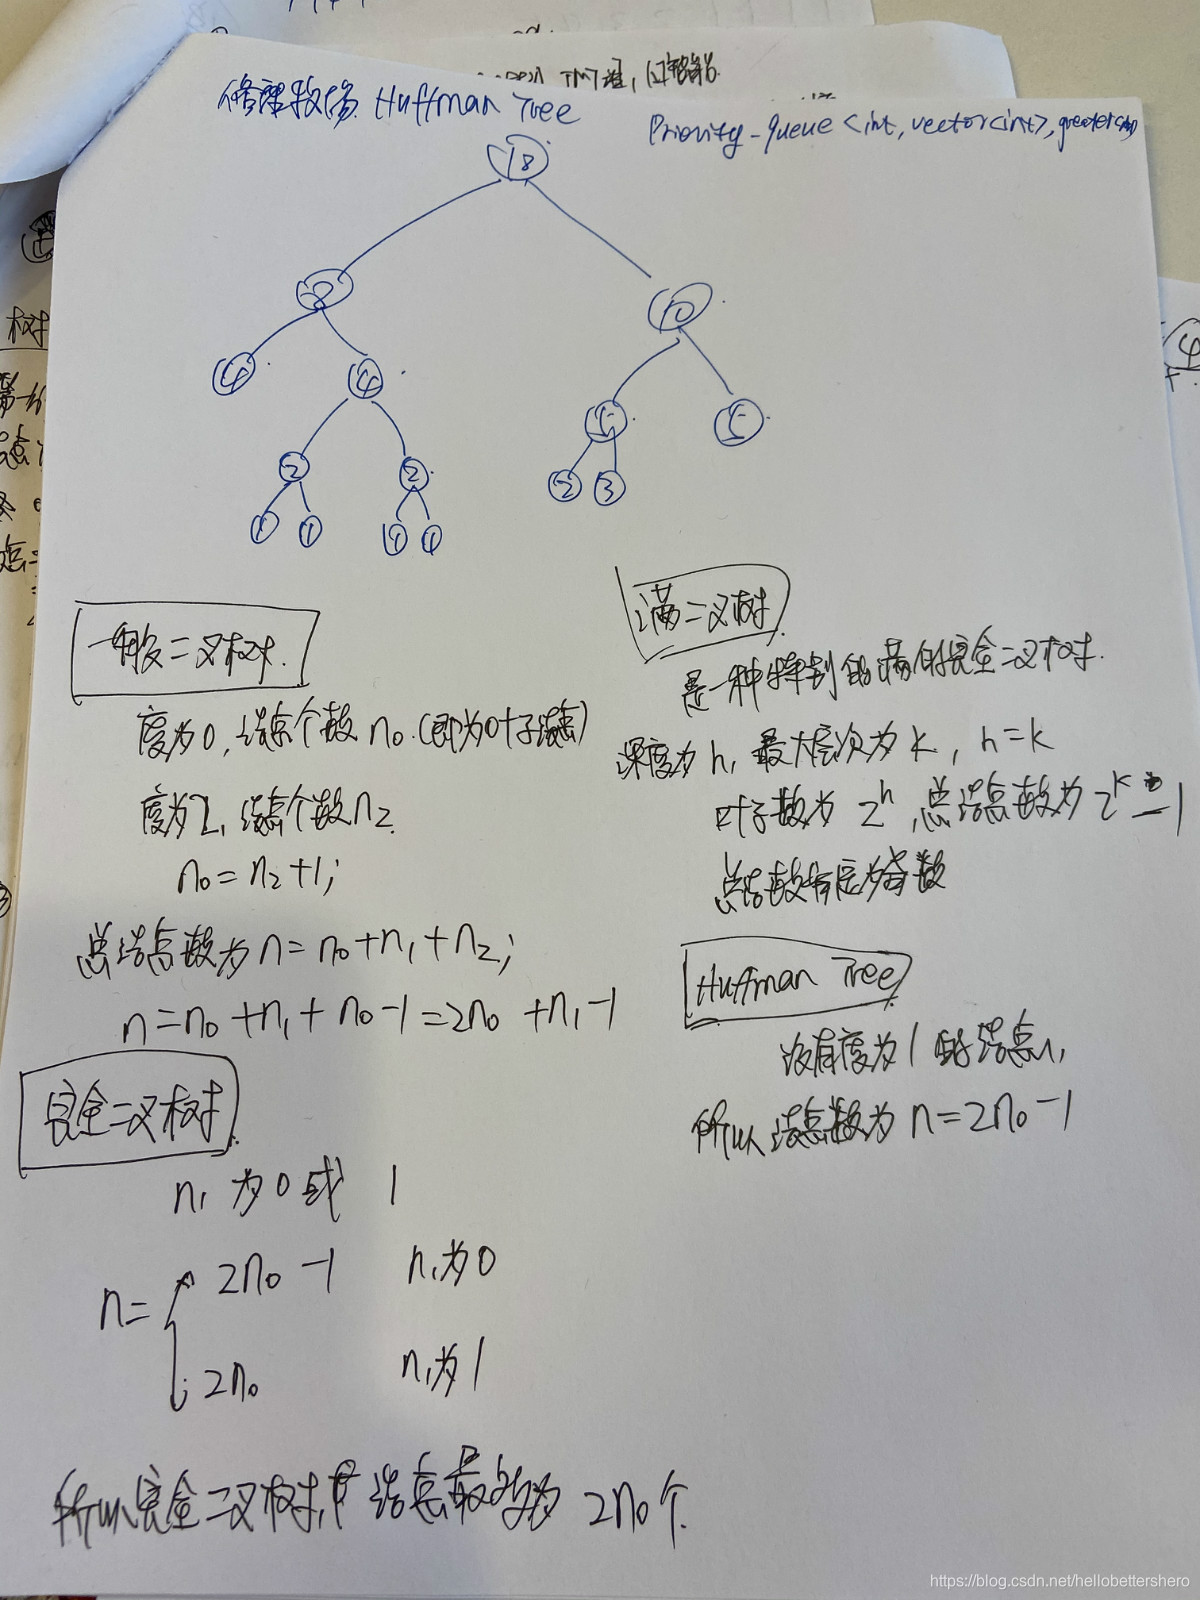 修理牧场 Huffman Tree
Priority-queue <int, vector<int>, greater<int>>
18
8
10
4
4
5
5
2
2
2
3
1
1
1
1
一般二叉树.
度为0, 结点个数 n0. (即为叶子结点)
度为2, 结点个数 n2.
n0 = n2 + 1;
总结点数为 n = n0 + n1 + n2;
n = n0 + n1 + n0 - 1 = 2n0 + n1 - 1
完全二叉树.
n1 为 0 或 1
n =
2n0 - 1 n1为0
2n0 n1为1
所以完全二叉树, 结点最多为 2n0 个.
满二叉树.
是一种特别的满的完全二叉树.
深度为 h, 最大层次为 k, h = k
叶子数为 2^h, 总结点数为 2^k - 1
总结点数肯定为奇数
Huffman Tree
没有度为1的结点,
所以结点数为 n = 2n0 - 1
树
https://blog.csdn.net/hellobettershero